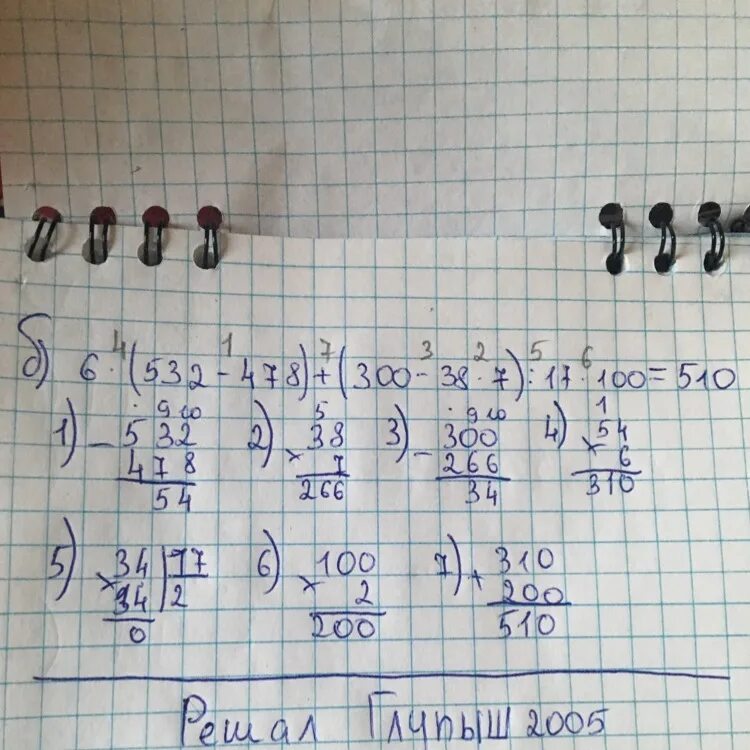 б) 6 · (532 - 478) + (300 - 38 · 7) : 17 · 100 = 510
4 1 7 3 2 5 6
1) 532 - 478 = 54
2) 38 × 7 = 266
3) 300 - 266 = 34
4) 54 × 6 = 310
5) 34 | 17
34 | 2
0
6) 100 × 2 = 200
7) 310 + 200 = 510
Решал Глупыш 2005